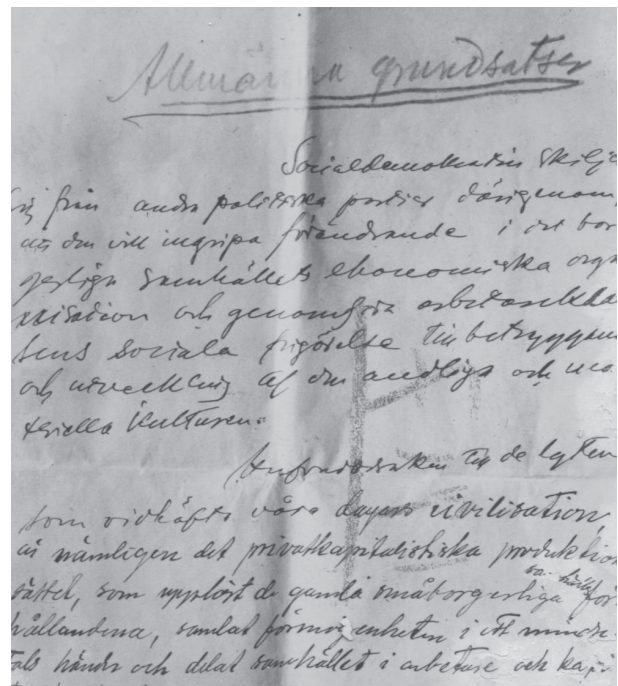 Allmänna grundsatser
Socialdemokratin skilje
sig från andra politiska partier därigenom,
att den vill ingripa förändrande i det bor
gerliga samhällets ekonomiska orga
nisation och genomföra arbetarekla
sens sociala frigörelse till betryggan
och utveckling af den andliga och ma
teriella kulturen.
Hufvudorsaken till de lyten
som vidhäfta våra dagars civilisation,
är nämligen det privatkapitalistiska produktion
sättet, som upplöst de gamla småborgerliga
samhälls för
hållandena, samlat förmögenheten i ett mindre
tals händer och delat samhället i arbetare och kapi